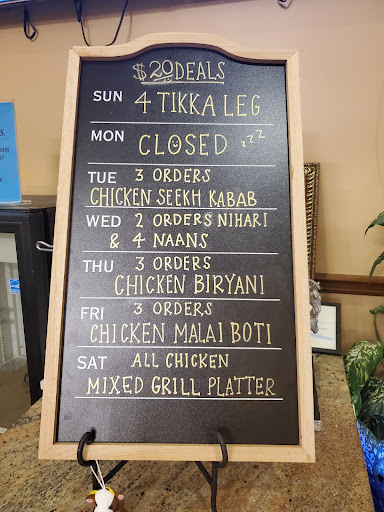 $20 DEALS
SUN 4 TIKKA LEG
MON CLOSED zzz
TUE 3 ORDERS
CHICKEN SEEKH KABAB
WED 2 ORDERS NIHARI
& 4 NAANS
THU 3 ORDERS
CHICKEN BIRYANI
FRI 3 ORDERS
CHICKEN MALAI BOTI
SAT ALL CHICKEN
MIXED GRILL PLATTER